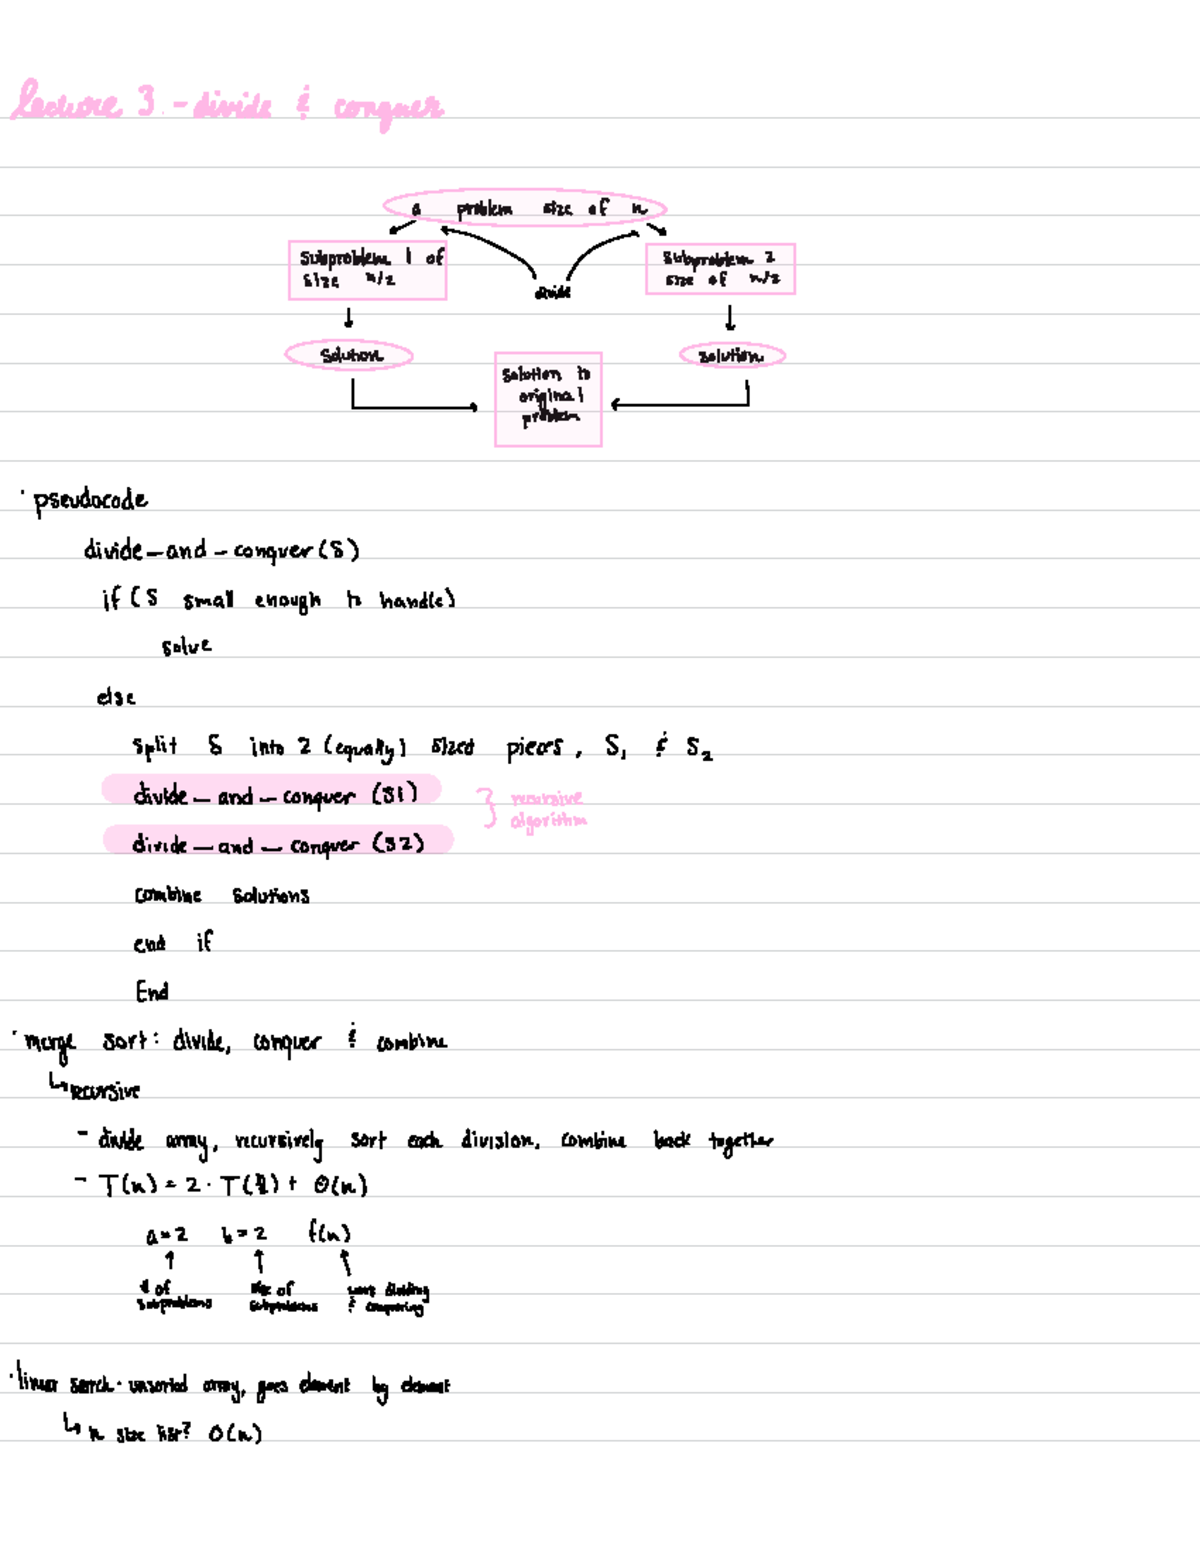 Lecture 3 - divide & conquer
a problem size of n
Subproblem 1 of
size n/2
divide
Subproblem 2
size of n/2
Solution
solution
solution to
original
problem
· pseudocode
divide-and-conquer(S)
if (S small enough to handle)
solve
else
split S into 2 (equally) sized pieces, S₁ & S₂
divide-and-conquer (S1)
divide-and-conquer (S2)
} recursive
algorithm
combine solutions
end if
End
· merge sort: divide, conquer & combine
↳ recursive
- divide array, recursively sort each division, combine back together
- T(n) = 2 · T(n/2) + Θ(n)
a=2 b=2 f(n)
# of
subproblems
size of
subproblems
work dividing
& conquering
· linear search - unsorted array, goes element by element
↳ n size list? O(n)